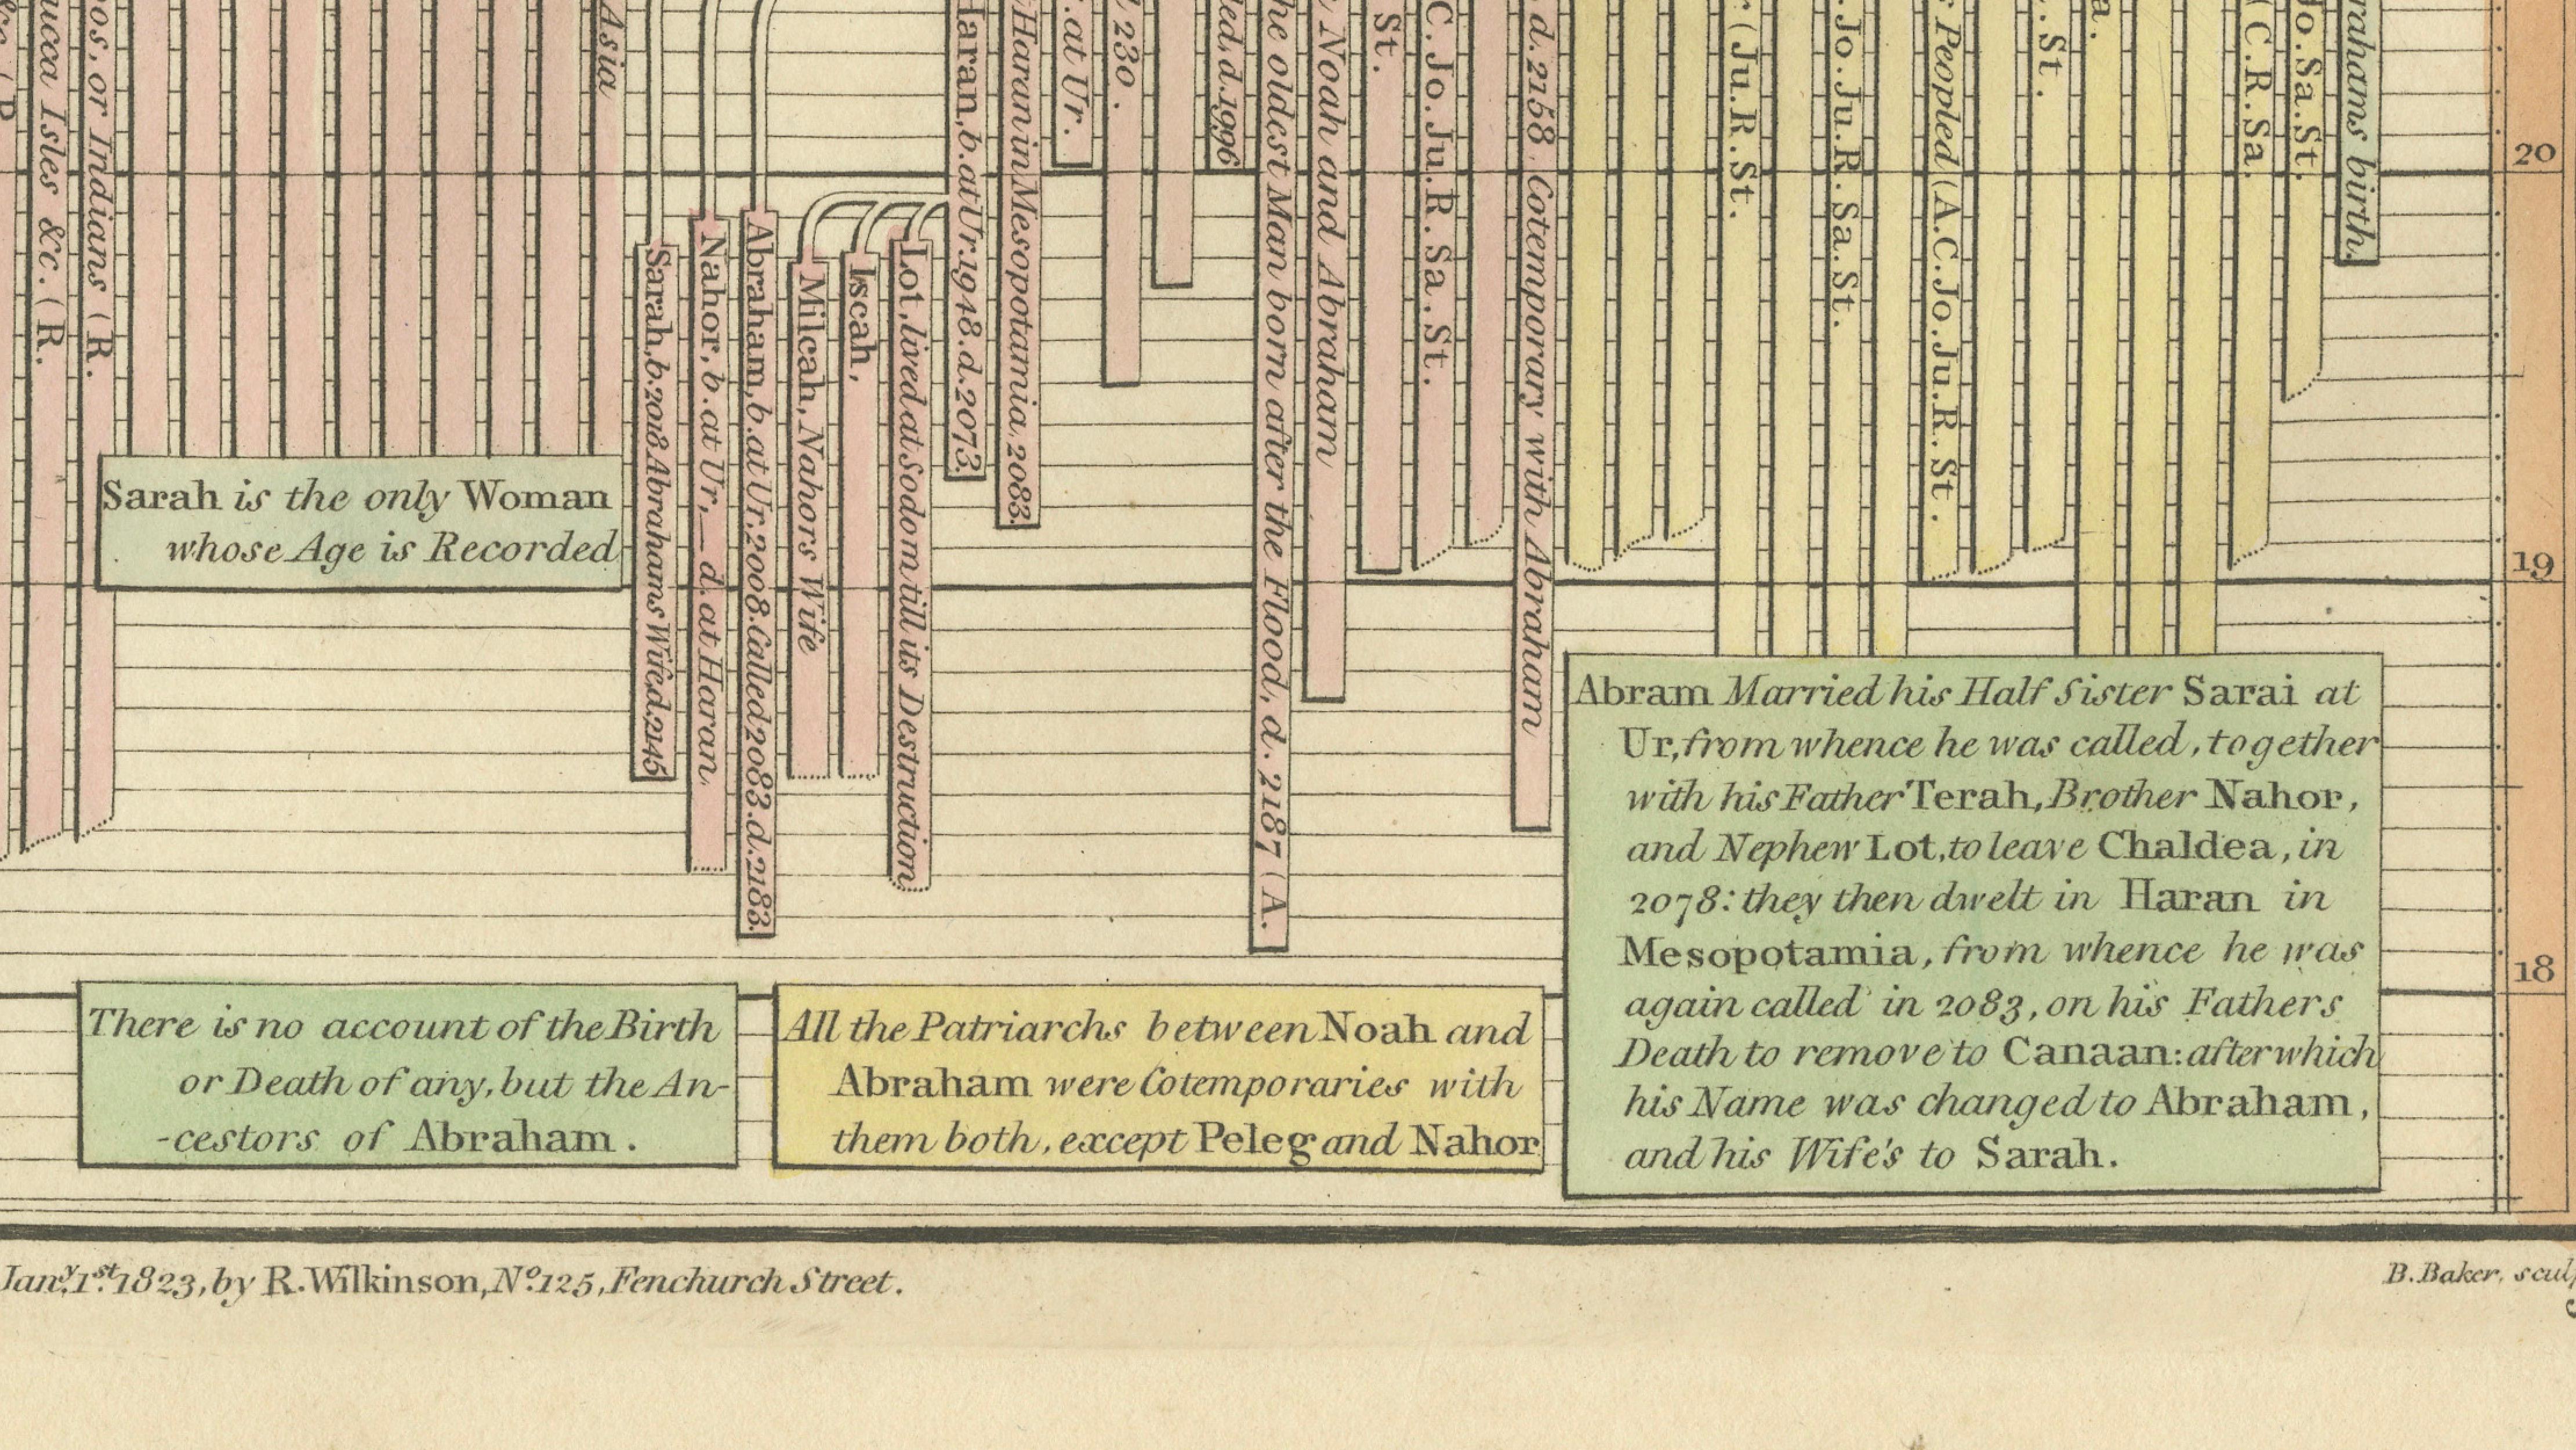 ucca Isles &c. (R.
os, or Indians (R.
Asia
Sarah, b. 2018 Abrahams Wife, d. 2145
Nahor, b. at Ur, — d. at Haran
Abraham, b. at Ur, 2008. Called 2083. d. 2183.
Milcah, Nahors Wife
Iscah,
Lot, lived at Sodom till its Destruction
Haran, b. at Ur. 1948. d. 2073.
Haran in Mesopotamia, 2083.
. at Ur.
230.
ed, d. 1996
he oldest Man born after the Flood, d. 2187 (A.
Noah and Abraham
St.
C. Jo. Ju. R. Sa. St.
d. 2158. Cotemporary with Abraham
r (Ju. R. St.
Jo. Ju. R. Sa. St.
Peopled (A. C. Jo. Ju. R. St.
. St.
a.
(C. R. Sa.
Jo. Sa. St.
rahams birth.
20
19
18
Sarah is the only Woman
whose Age is Recorded
There is no account of the Birth
or Death of any, but the An-
-cestors of Abraham.
All the Patriarchs between Noah and
Abraham were Cotemporaries with
them both, except Peleg and Nahor
Abram Married his Half Sister Sarai at
Ur, from whence he was called, together
with his Father Terah, Brother Nahor,
and Nephew Lot, to leave Chaldea, in
2078: they then dwelt in Haran in
Mesopotamia, from whence he was
again called in 2083, on his Fathers
Death to remove to Canaan: after which
his Name was changed to Abraham,
and his Wife's to Sarah.
Jany. 1st. 1823, by R. Wilkinson, No. 125, Fenchurch Street.
B. Baker, sculp